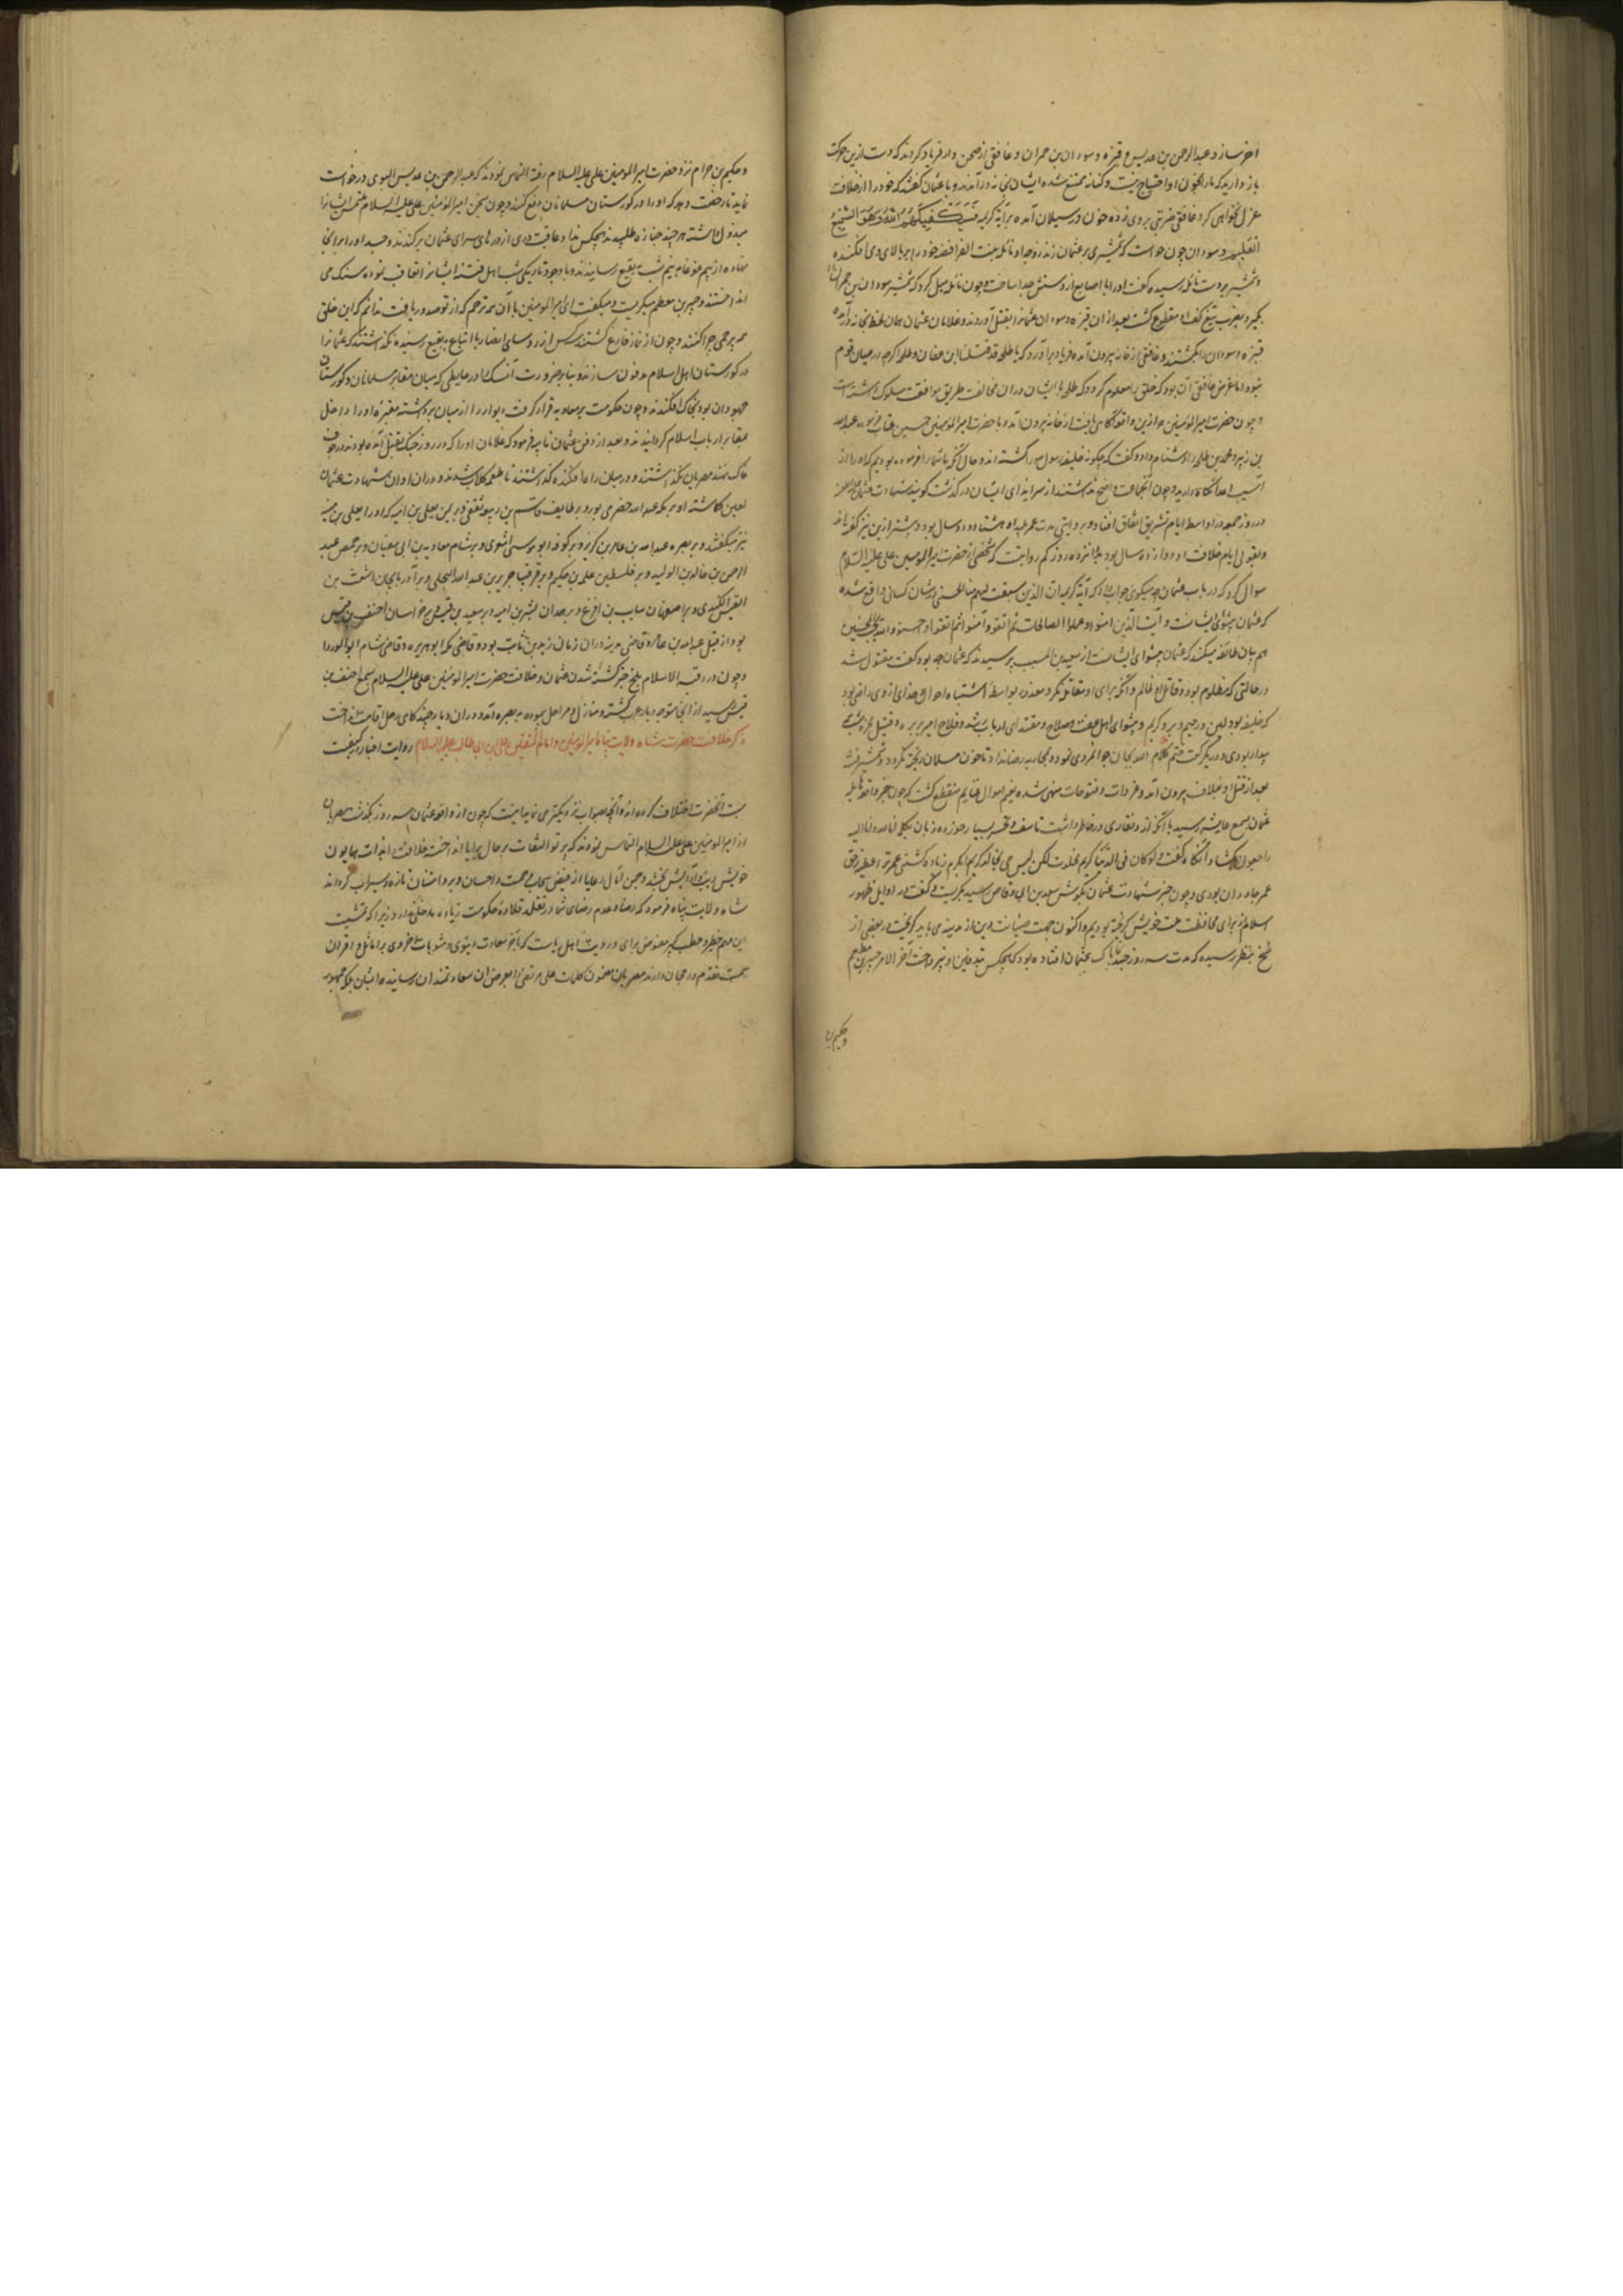 آخر سازد عبدالرحمن بن عدیس و قتیره و سودان بن حمران و غافقی از صحن دار فریاد کردند که دست ازین حرکت
باز دارید که ما را بخون او احتیاج نیست و کنانه ممتنع شده ایشان بخانه درآمدند و با عثمان گفتند که خود را از خلافت
عزل نخواهی کرد غافقی ضربتی بر وی زده خون در سیلان آمده بر آیه کریمه فَسَيَكْفِيكَهُمُ اللَّهُ وَهُوَ السَّمِيعُ
العلیم و سودان چون خواست که شمشیری بر عثمان زند زوجه او نائله بنت الفرافضه خود را بر بالای وی افکنده
و شمشیر بر دست نائله رسیده کفت او را با اصابع از دستش جدا ساخت و چون نائله میل کرد که شمشیر سودان بن حمران را
بگیرد بضرب تیغ کف او مقطوع گشت بعد از ان قتیره و سودان عثمانرا بقتل آوردند و غلامان عثمان همان لحظه بخانه درآمده
قتیره و سودان را بکشتند و غافقی از خانه بیرون آمده فریاد برآورد که یا طلحه قد قتلنا ابن عفان و طلحه اگرچه در میان قوم
نبود اما غرض غافقی آن بود که خلق را معلوم گردد که طلحه با ایشان در ان مخالفت طریق موافقت مسلوک داشته است
و چون حضرت امیرالمؤمنین ازین واقعه آگاهی یافت از خانه بیرون آمد و با حضرت امیرالمومنین حسین عتاب فرمود و عبدالله
بن زبیر و محمد بن طلحه را دشنام داد و گفت که چگونه خلیفه رسول را کشته اند و حال آنکه ما شما را فرموده بودیم که او را از
آسیب اعدا نگاه دارید و چون
در روز جمعه در اواسط ایام تشریق اتفاق افتاد و بروایتی مدت عمر او هشتاد و دو سال بود و بیشتر ازین نیز گفته اند
و بقولی ایام خلافت او دوازده سال بود بجا پانزده روز کم روایتست که شخصی از حضرت امیرالمومنین علی علیه السلام
سوال کرد که در باب عثمان چه میگوی جواب داد که آیه کریمه ان الذین سبقت لهم منا الحسنی در شان کسانی واقع شده
که عثمان پیشوای ایشانست و آیت الذین امنوا و عملوا الصالحات ثم اتقوا و آمنوا ثم اتقوا و احسنوا و الله یحب المحسنین
هم بیان طائفه میکند که عثمان پیشوای ایشانست از سعید بن المسیب پرسیدند که عثمان چه بود گفت مقتول شد
در حالتی که مظلوم بود و قاتل او ظالم و آنکه برای او مقاتله نکرد معذور بواسطه اشتباه احوال و خدای از وی راضی بود
که خلیفه بود
بیدار بودی و در یک رکعت ختم کلام الله
بعد از قتل او بغلاف بیرون آمد و غزوات و فتوحات منتهی شده
عثمان بسمع عایشه رسید با آنکه از وی نقاری در خاطر داشت تاسف و تحسر بسیار خورده زبان بکلمه انا لله و انا الیه
راجعون بگشاد و آنگاه گفت
عمر جاودان بودی و چون خبر شهادت عثمان بگوش سعد بن ابی وقاص رسید بگریست و گفت در اوایل ظهور
اسلام از برای محافظت ملت خویش گریخته بودیم و اکنون جهت صیانت دین از مدینه می باید گریخت در بعضی از
بنظر رسیده که مدت سه روز جسد پاک عثمان افتاده بود که هیچکس بتدفین او نپرداخت آخر الامر جبیر بن مطعم
و حکیم بن
و حکیم بن حزام نزد حضرت امیرالمومنین علی علیه السلام رفته التماس نمودند که عبدالرحمن بن عدیس البلوی درخواست
نماید تا رخصت دهد که او را در گورستان مسلمانان دفع کنند و چون سخن امیرالمومنین علی علیه السلام ملتمس ایشانرا
مبذول داشته هر چند جنازه طلبیدند هیچکس نداد عاقبت دری از درهای سرای عثمان برکندند و جسد او را بر آنجا
نهاده از بیم غوغا نیم شب به بقیع رسانیدند و با وجود تاریکی شب اهل فتنه ایشانرا تعاقب نموده سنگ می
انداختند و جبیر بن مطعم میگریست و میگفت ای امیرالمومنین با آن همه ترحم که از تو صدور یافت ندانم که این خلق
همه بیرحمی چرا کنند و چون از نماز فارغ گشتند کس از روسای انصار با اتباع به بقیع رسیده نگذاشتند که عثمانرا
در گورستان اهل اسلام مدفون سازند و بنا بر ضرورت آنکس را در حایطی که میان مقابر مسلمانان و گورستان
جهودان بود بخاک افکندند و چون حکومت بر معاویه قرار گرفت دیوار را از میان برداشته مقبره او را داخل
مقابر ارباب اسلام گردانیدند و بعد از دفن عثمان نایله فرمود که غلامان او را که در روز جنگ بقتل آمده بودند در جوف
خاک نهند مصریان نگذاشتند و در میان راه افکنده گذاشتند تا طعمه کلاب شدند و در ان اوان شهادت عثمان
یعنی گماشته او بر مکه عبدالله حضرمی بود و بر طایف قاسم بن ربیعه ثقفی و بر یمن یعلی بن امیه که او را یعلی بن منیه
نیز میگفتند و بر بصره عبدالله بن عامر بن کریز و بر کوفه ابو موسی اشعری و بر شام معاویه بن ابی سفیان و بر حمص عبد
الرحمن بن خالد بن الولید و بر فلسطین علقمه بن حکیم و بر قرقیسا جریر بن عبدالله البجلی و بر آذربایجان اشعث بن
القیس الکندی و بر اصفهان سایب بن اقرع و بر همدان بشر بن امیه و بر سعید بن قیس و بر خراسان احنف بن قیس
بود از قبل عبدالله بن عامر و قاضی مدینه در ان زمان زید بن ثابت بود و قاضی مکه ابوهریره و قاضی شام ابوالدردا
و چون در قبه الاسلام بلخ خبر کشته شدن عثمان و خلافت حضرت امیرالمومنین علی علیه السلام بسمع احنف بن
قیس رسید از آنجا متوجه دیار عرب گشته و منازل و مراحل پیموده به بصره آمد و در ان دیار چندگاهی رحل اقامت انداخت
ذکر خلافت حضرت شاه ولایت پناه امیرالمومنین و امام المتقین علی بن ابی طالب علیه السلام روایت اخبار در کیفیت
بیعت آنحضرت اختلاف کرده اند و آنچه بصواب نزدیکتر می نماید اینست که چون از واقعه عثمان سه روز بگذشت مصریان
از امیرالمومنین علی علیه السلام التماس نمودند که پرتو التفات بر حال برایا انداخته خلافت را بذات همایون
خویش زیب و آرایش بخشد و چمن آمال رعایا از فیض سحاب رحمت و احسان و بر و امتنان تازه و سیراب گرداند
شاه ولایت پناه فرمود که رضا و عدم رضای شما در تقلد قلاده حکومت زیاده مدخلی ندارد زیرا که تمشیت
این مهم خطیر و خطب کبیر مفوض برای و رویت اهل
سمت تقدم و رجحان دارند مصریان مضمون کلمات علی مرتضی را بعرض آن سعادتمندان رسانیده ایشان بلکه جمهور